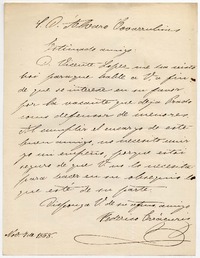 S. D. Alvaro Covarrubias
Estimado amigo:
D. Vicente Lopez me ha visto
hoi para que hable a V. a fin
de que se interese en su favor
por la vacante que deja Prado
como defensor de menores.
Al cumplir el encargo de este
buen amigo, no necesito unir
mi empeño, porque estoi
seguro de que V. no lo necesita
para hacer en su obsequio lo
que esté de su parte.
Disponga V. de su amigo
Federico Errázuriz
1855.